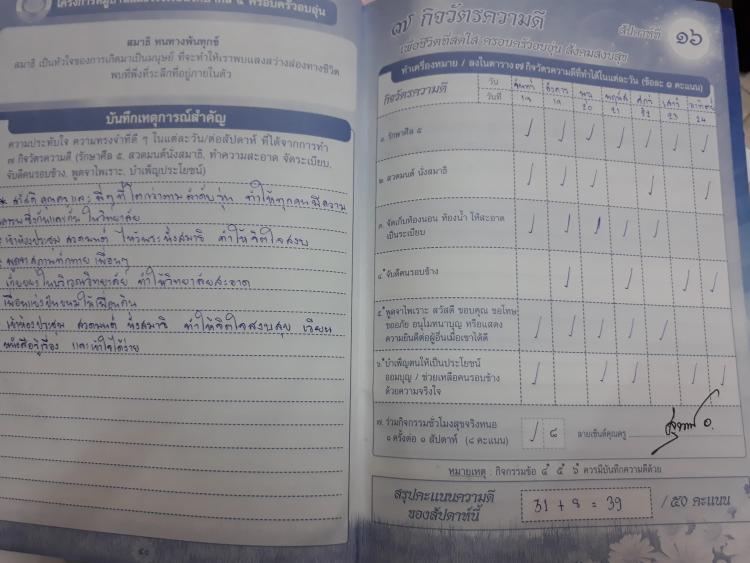 สมาธิ หนทางพ้นทุกข์
สมาธิ เป็นหัวใจของการเกิดมาเป็นมนุษย์ ที่จะทำให้เราพบแสงสว่างส่องทางชีวิต
พบที่พึ่งที่ระลึกที่อยู่ภายในตัว
บันทึกเหตุการณ์สำคัญ
ความประทับใจ ความทรงจำที่ดี ๆ ในแต่ละวัน/ต่อสัปดาห์ ที่ได้จากการทำ
๗ กิจวัตรความดี (รักษาศีล ๕, สวดมนต์นั่งสมาธิ, ทำความสะอาด จัดระเบียบ,
จับดีคนรอบข้าง, พูดจาไพเราะ, บำเพ็ญประโยชน์)
สวัสดีคุณครูและพี่ๆที่โตกว่าตามลำดับรุ่น ทำให้ทุกคนมีความ
เคารพซึ่งกันและกัน ในวิทยาลัย
เข้าห้องประชุม สวดมนต์ ไหว้พระ นั่งสมาธิ ทำให้จิตใจสงบ
พูดจาสุภาพทักทาย เพื่อนๆ
เก็บขยะในบริเวณวิทยาลัย ทำให้วิทยาลัยสะอาด
เพื่อนแบ่งปันขนมให้เพื่อนกิน
เข้าห้องประชุม สวดมนต์ นั่งสมาธิ ทำให้จิตใจสงบสุข เรียน
หนังสือรู้เรื่อง และเข้าใจได้ง่าย
๗ กิจวัตรความดี
สัปดาห์ที่ ๑๖
เพื่อชีวิตที่สดใส ครอบครัวอบอุ่น สังคมสงบสุข
ทำเครื่องหมาย / ลงในตาราง ๗ กิจวัตรความดีที่ทำได้ในแต่ละวัน (ข้อละ ๑ คะแนน)
กิจวัตรความดี วัน จันทร์ อังคาร พุธ พฤหัส ศุกร์ เสาร์ อาทิตย์
วันที่ 20 21 22 23 24
๑. รักษาศีล ๕ / / / / / / /
๒. สวดมนต์ นั่งสมาธิ / / / / /
๓. จัดเก็บห้องนอน ห้องน้ำ ให้สะอาด
เป็นระเบียบ / / / / /
๔. จับดีคนรอบข้าง / / / /
๕. พูดจาไพเราะ สวัสดี ขอบคุณ ขอโทษ
ขออภัย อนุโมทนาบุญ หรือแสดง
ความยินดีต่อผู้อื่นเมื่อเขาได้ดี / / / / /
๖. บำเพ็ญตนให้เป็นประโยชน์
ออมบุญ / ช่วยเหลือคนรอบข้าง
ด้วยความจริงใจ / / / / /
๗. ร่วมกิจกรรมชั่วโมงสุขจริงหนอ
๑ ครั้งต่อ ๑ สัปดาห์ (๘ คะแนน) / ๘ ลายเซ็นต์คุณครู
หมายเหตุ : กิจกรรมข้อ ๔ ๕ ๖ ควรมีบันทึกความดีด้วย
สรุปคะแนนความดี
ของสัปดาห์นี้ 31 + 8 = 39 / ๕๐ คะแนน